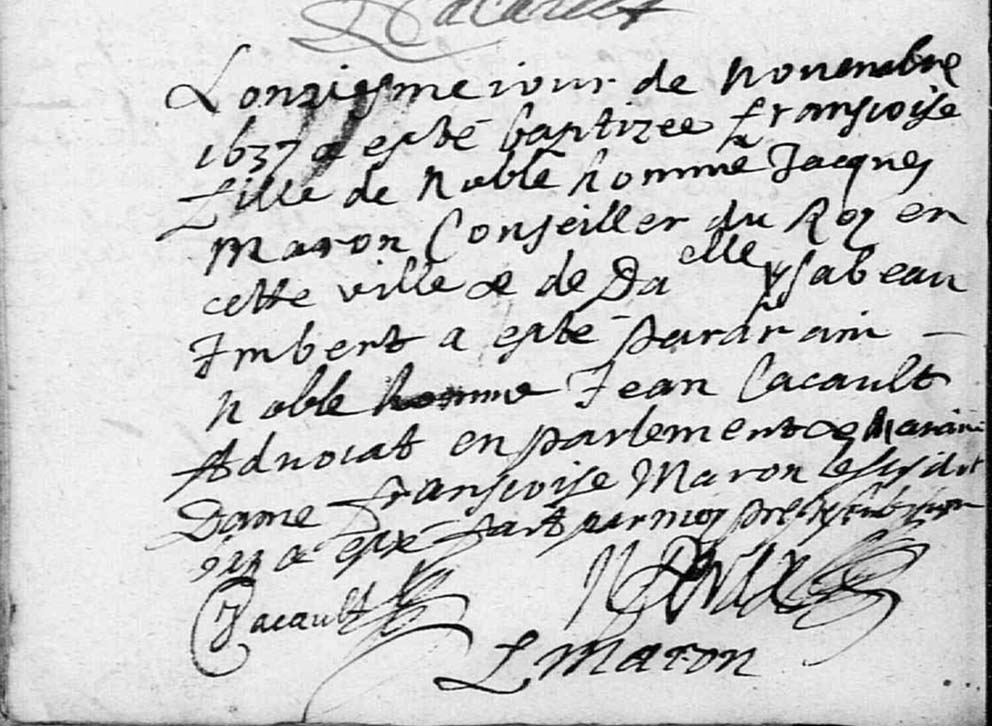 Cacault
Lonziesme iour de nouembre
1637 a esté baptizee françoise
fille de noble homme Jacques
Maron Conseiller du Roy en
cette ville & de Da elle ysabeau
Imbert a esté pardrain –
noble homme Jean Cacault
Aduocat en parlement & Maraine
Dame françoise Maron le susdit
iour a esté fait par moy
Cacault
f Maron